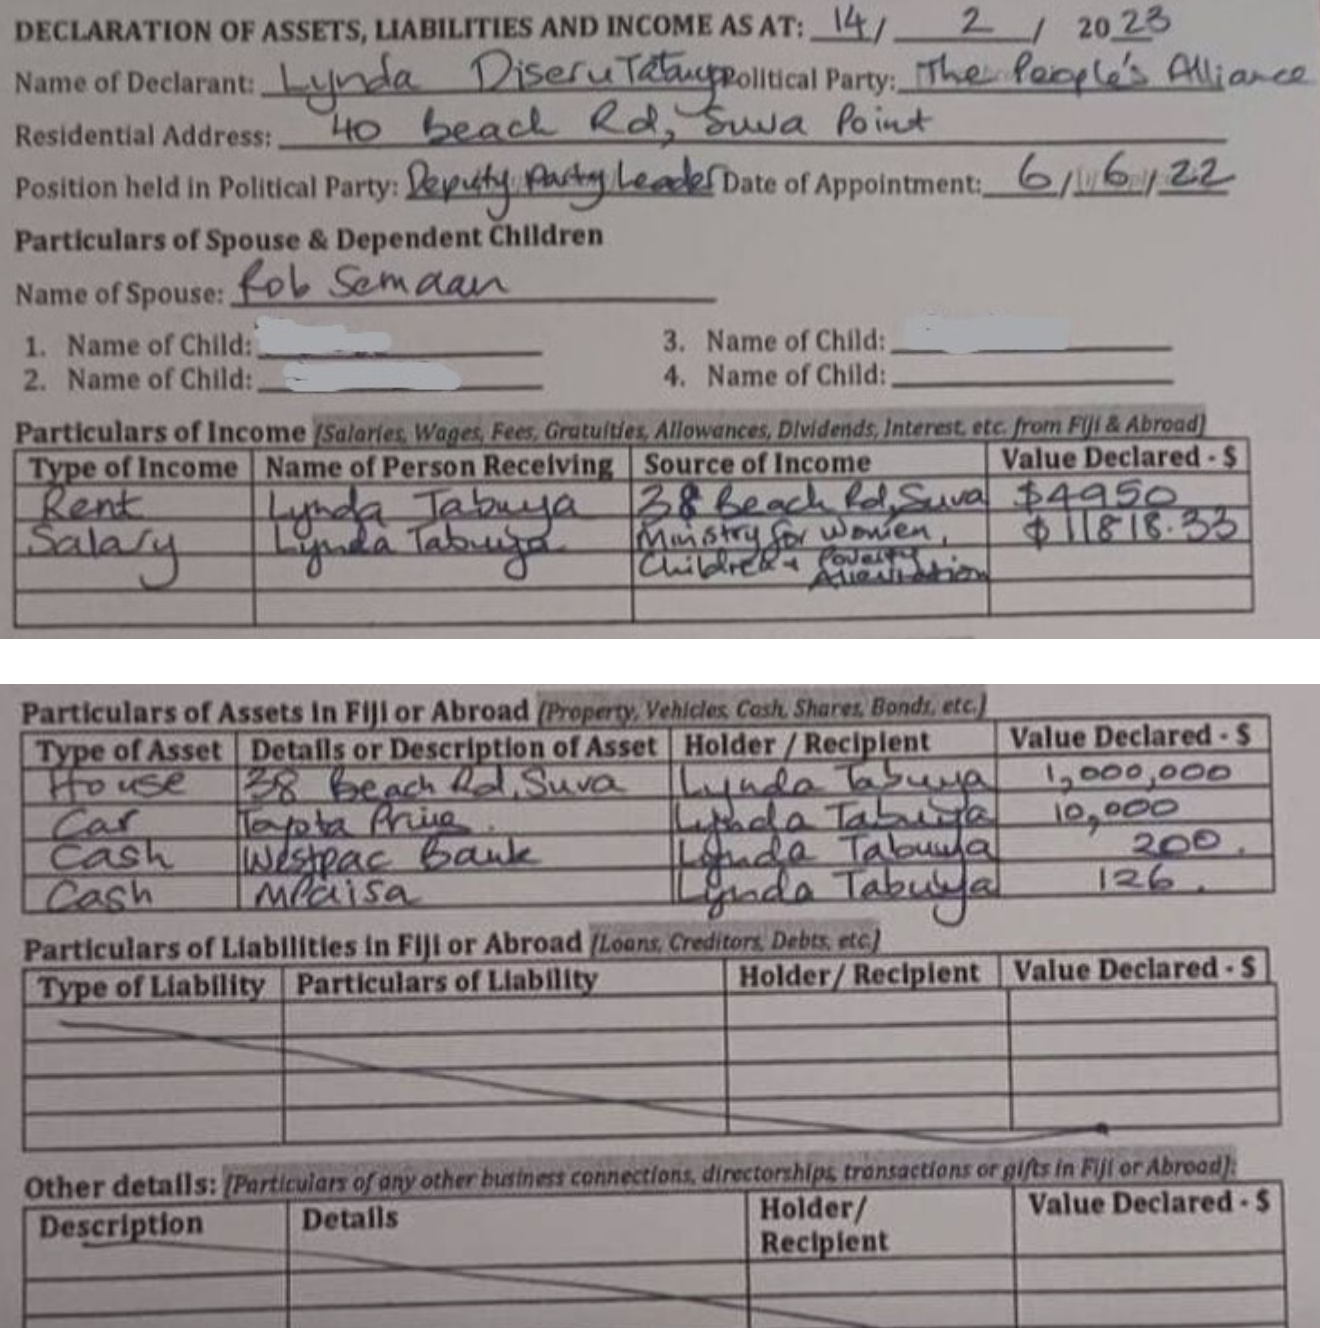 DECLARATION OF ASSETS, LIABILITIES AND INCOME AS AT: 14/ 2 / 2023
Name of Declarant: Lynda Diseru Tabuya Political Party: The People's Alliance
Residential Address: 40 Beach Rd, Suva Point
Position held in Political Party: Deputy Party Leader Date of Appointment: 6/ 6 /22
Particulars of Spouse & Dependent Children
Name of Spouse: Rob Semaan
1. Name of Child: 3. Name of Child:
2. Name of Child: 4. Name of Child:
Particulars of Income [Salaries, Wages, Fees, Gratuities, Allowances, Dividends, Interest, etc. from Fiji & Abroad]
Type of Income Name of Person Receiving Source of Income Value Declared - $
Rent Lynda Tabuya 38 Beach Rd, Suva $4950
Salary Lynda Tabuya Ministry for Women, $11818.33
Children + Poverty
Alleviation
Particulars of Assets in Fiji or Abroad [Property, Vehicles, Cash, Shares, Bonds, etc.]
Type of Asset Details or Description of Asset Holder / Recipient Value Declared - $
House 38 Beach Rd, Suva Lynda Tabuya 1,000,000
Car Toyota Prius. Lynda Tabuya 10,000
Cash Westpac Bank Lynda Tabuya 200.
Cash MPaisa Lynda Tabuya 126.
Particulars of Liabilities in Fiji or Abroad [Loans, Creditors, Debts, etc.]
Type of Liability Particulars of Liability Holder/ Recipient Value Declared - $
Other details: [Particulars of any other business connections, directorships, transactions or gifts in Fiji or Abroad]:
Description Details Holder/ Value Declared - $
Recipient